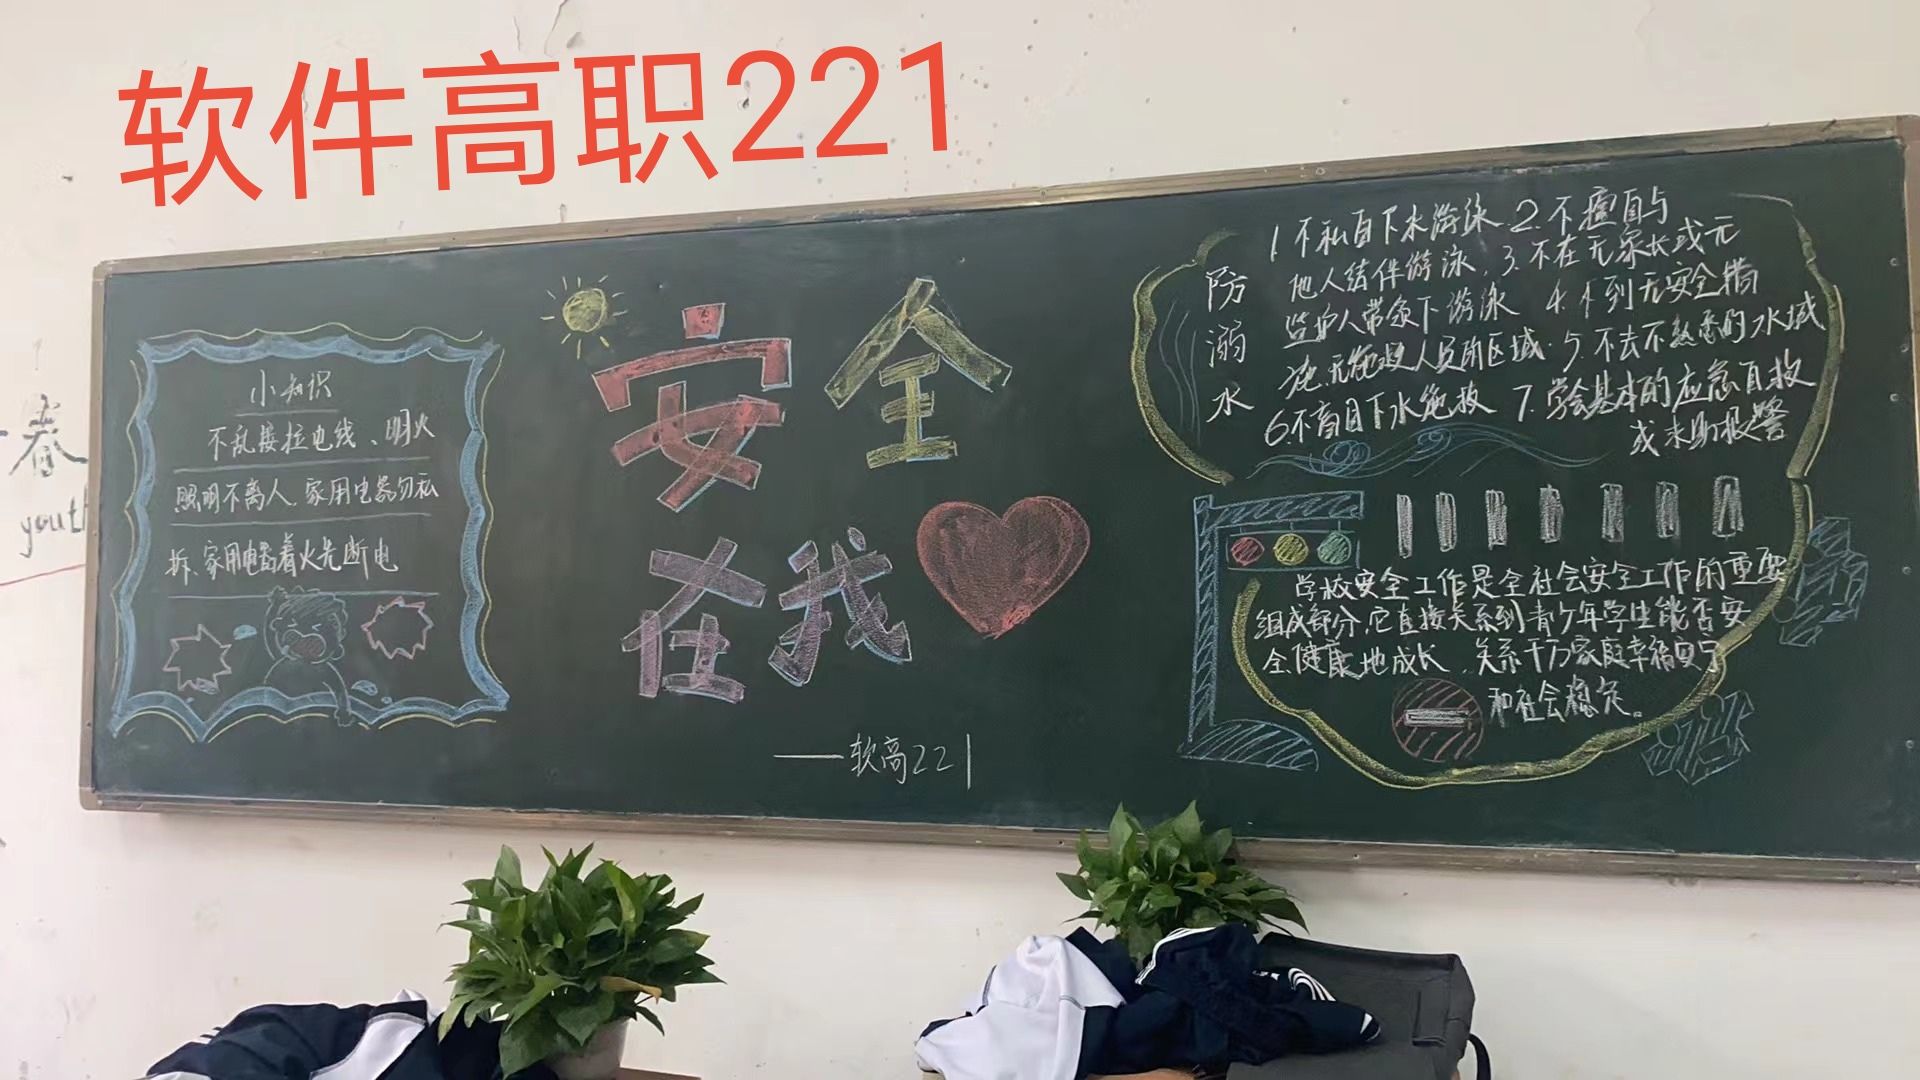 软件高职221
春
youth
小知识
不乱接拉电线、明火
照明不离人.家用电器勿私
拆、家用电器着火先断电
安全
在我
——软高221
防溺水
1.不私自下水游泳.2.不擅自与
他人结伴游泳.3.不在无家长或元
监护人带领下游泳 4.不到无安全措
施.无施救人员的区域.5.不去不熟悉的水域
6不盲目下水施救 7.学会基本的应急自救
或求助报警
学校安全工作是全社会安全工作的重要
组成部分,它直接关系到青少年学生能否安
全健康地成长,关系千万家庭幸福安宁
和社会稳定。